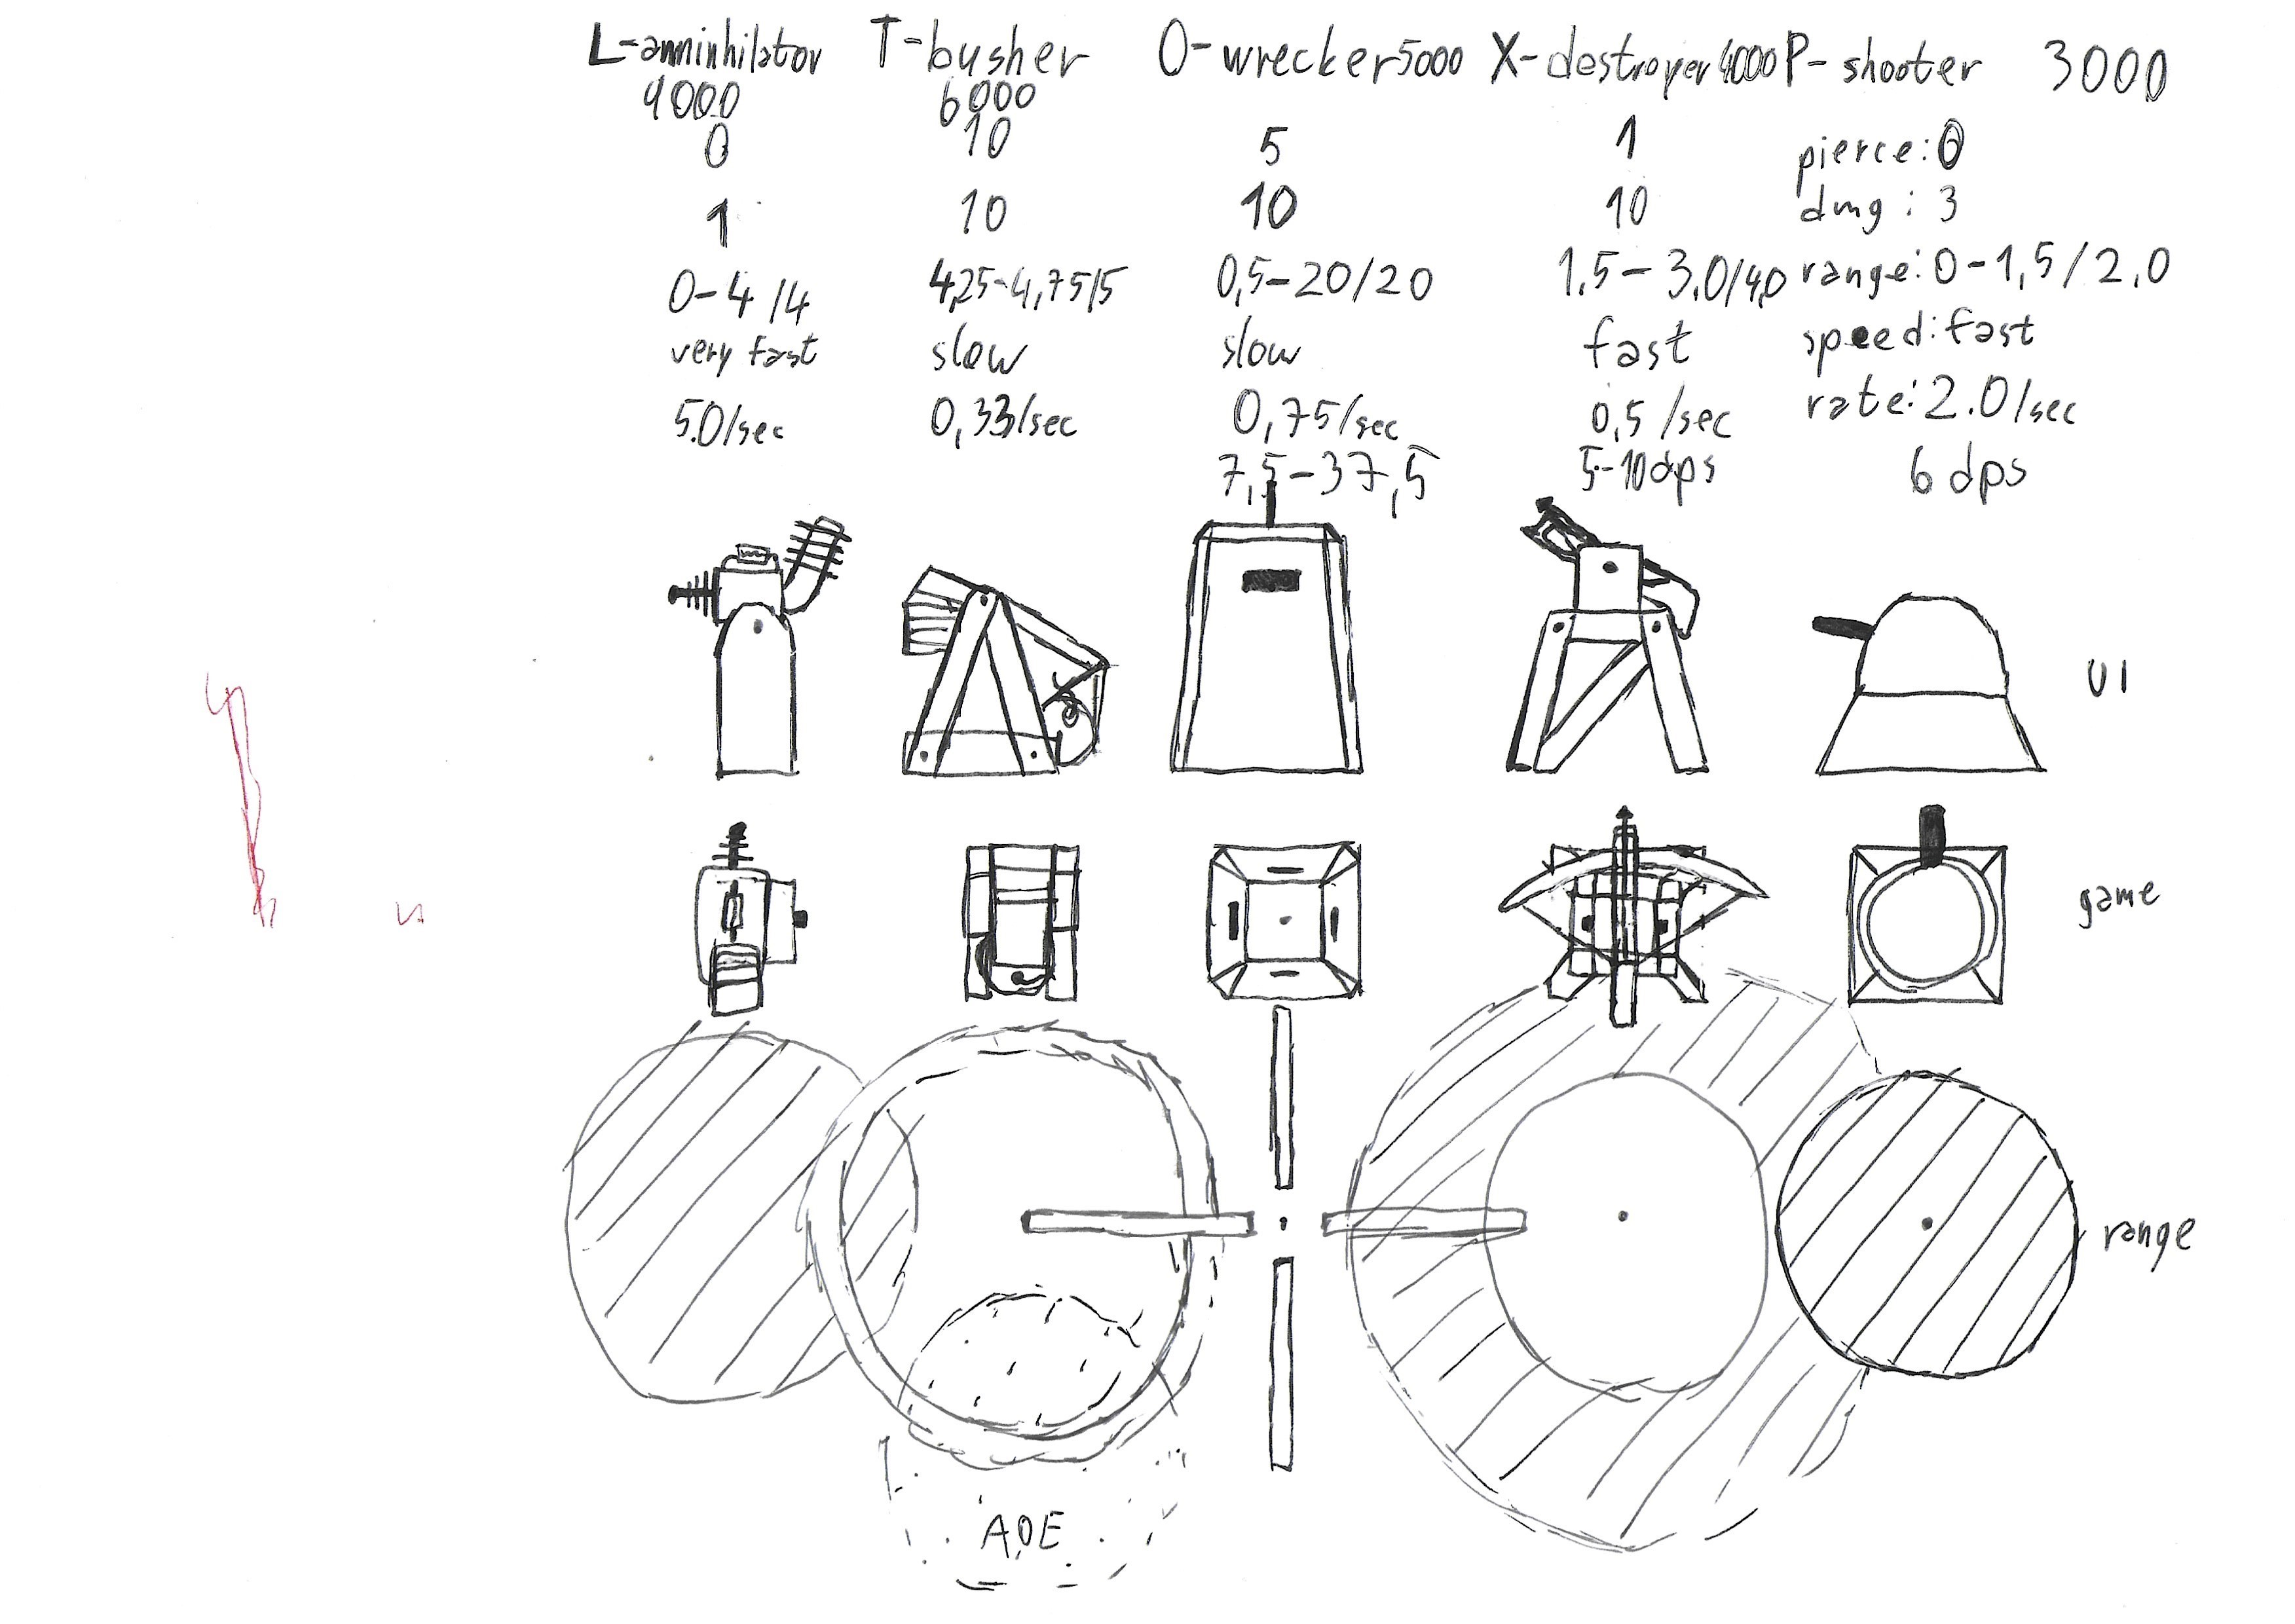 L-anninhilator T-busher O-wrecker 5000 X-destroyer 4000 P-shooter 3000
4000 6000
0 10 5 1 pierce: 0
1 10 10 10 dmg: 3
0-4/4 4,25-4,75/5 0,5-20/20 1.5-3.0/4,0 range: 0-1,5/2.0
very fast slow slow fast speed: fast
5.0/sec 0,33/sec 0,75/sec 0,5/sec rate: 2.0/sec
7,5-37,5 5-10dps 6 dps
UI
game
range
AOE